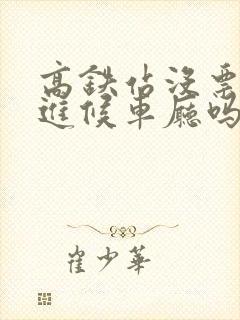 高铁站没票
进候车厅吗
崔少华